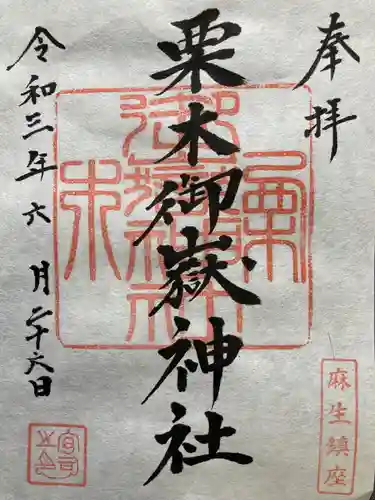 奉拝
栗木御嶽神社
令和三年六月二十六日
麻生鎮座
栗木御嶽神社
宮司之印